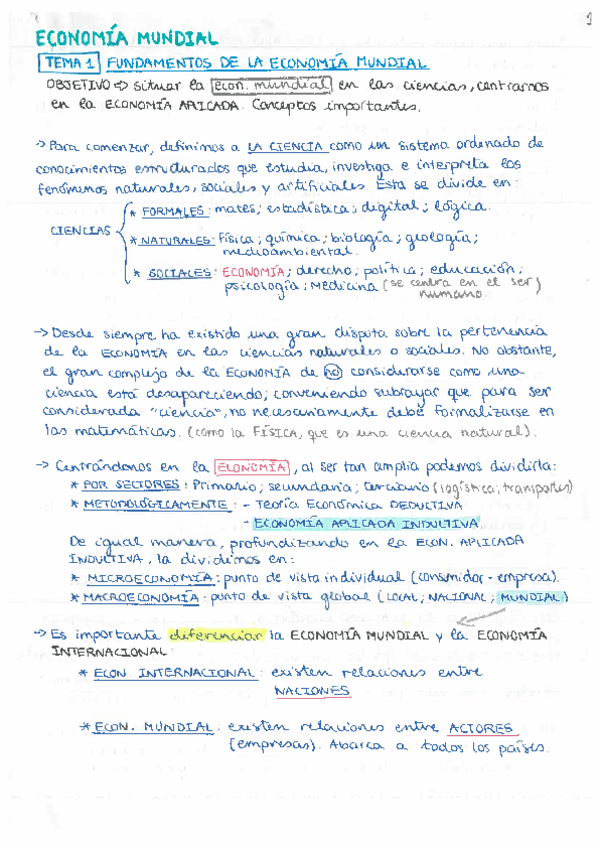 1
ECONOMÍA MUNDIAL
TEMA 1 FUNDAMENTOS DE LA ECONOMÍA MUNDIAL
OBJETIVO => situar la econ. mundial en las ciencias, centrarnos
en la ECONOMÍA APLICADA. Conceptos importantes.
-> Para comenzar, definimos a LA CIENCIA como un sistema ordenado de
conocimientos estructurados que estudia, investiga e interpreta los
fenómenos naturales, sociales y artificiales. Esta se divide en:
* FORMALES: mates; estadística; digital; lógica.
CIENCIAS
* NATURALES: física; química; biología; geología;
medioambiental.
* SOCIALES: ECONOMÍA; derecho; política; educación;
psicología; Medicina (se centra en el ser)
humano.
-> Desde siempre ha existido una gran disputa sobre la pertenencia
de la ECONOMÍA en las ciencias naturales o sociales. No obstante,
el gran complejo de la ECONOMÍA de no considerarse como una
ciencia está desapareciendo; conveniendo subrayar que para ser
considerada "ciencia", no necesariamente debe formalizarse en
las matemáticas. (como la FÍSICA, que es una ciencia natural).
-> Centrándonos en la ECONOMÍA, al ser tan amplia podemos dividirla:
* POR SECTORES: Primario; secundario; terciario (logística; transportes)
* METODOLÓGICAMENTE: - Teoría Económica DEDUCTIVA
- ECONOMÍA APLICADA INDUCTIVA
De igual manera, profundizando en la ECON. APLICADA
INDUCTIVA, la dividimos en:
* MICROECONOMÍA: punto de vista individual (consumidor - empresa).
* MACROECONOMÍA: punto de vista global (LOCAL; NACIONAL; MUNDIAL)
-> Es importante diferenciar la ECONOMÍA MUNDIAL y la ECONOMÍA
INTERNACIONAL:
* ECON. INTERNACIONAL: existen relaciones entre
NACIONES
* ECON. MUNDIAL: existen relaciones entre ACTORES
(empresas). Abarca a todos los países.